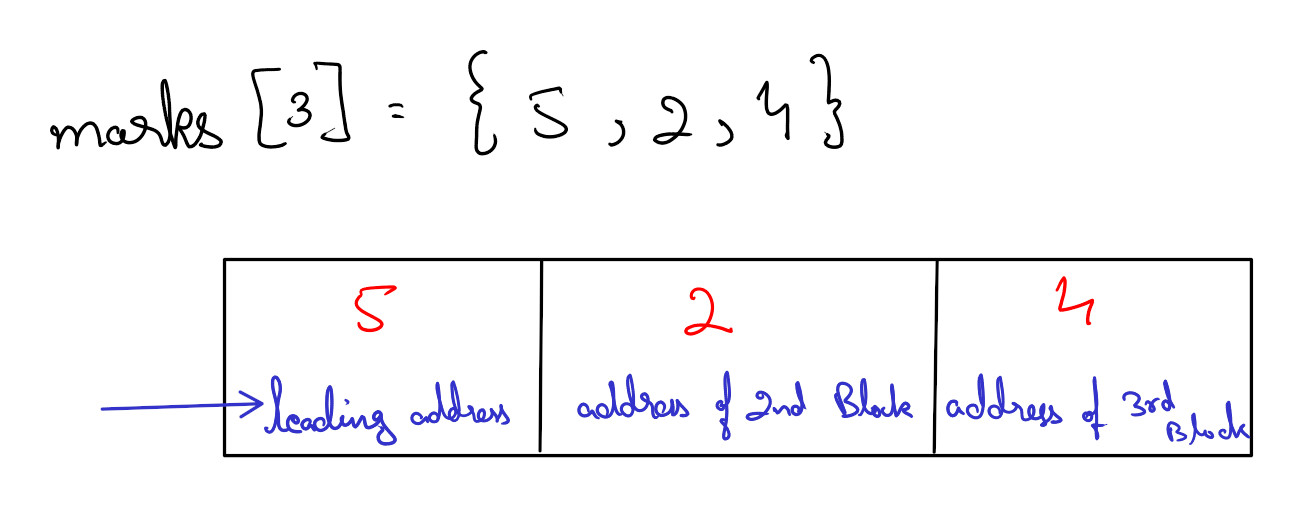 marks [3] = { 5 , 2 , 4 }
5 2 4
leading address address of 2nd Block address of 3rd Block